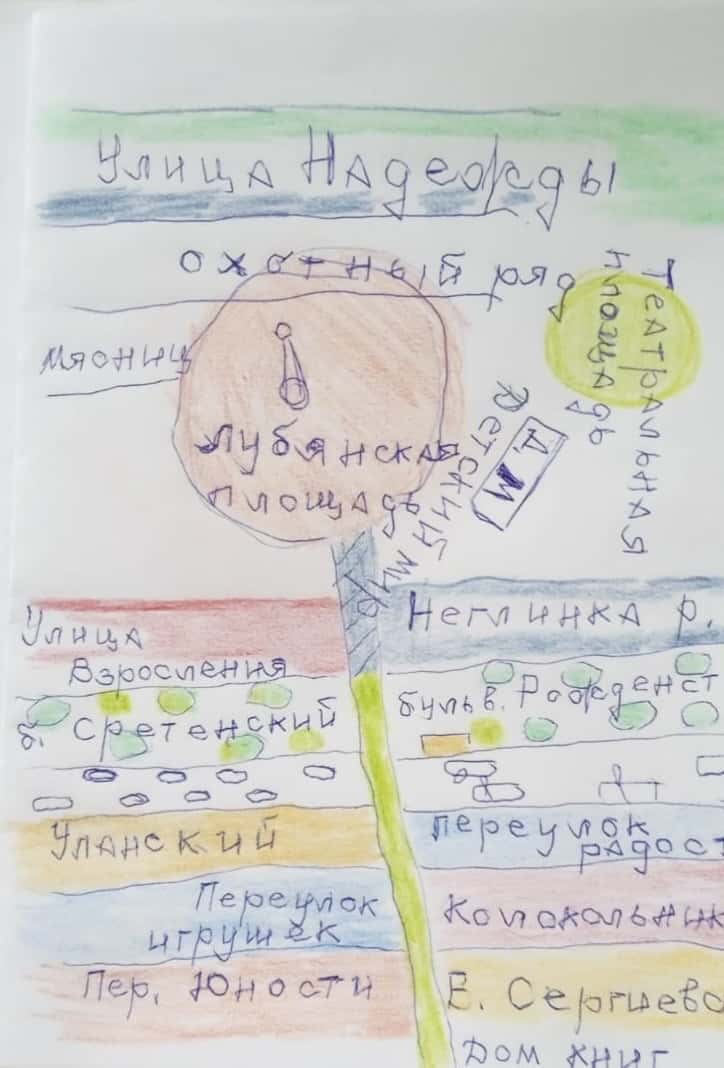 Улица Надеожды
охотный ряд
Театральная
площадь
мясниц
Лубянская
площадь
Детский мир
Д.М
Неглинка р.
Улица
Взросления
бульв. Рожденст
б. Сретенский
Уланский
переулок
радост
Переулок
игрушек
Колокольник
Пер. Юности
Б. Сергиево
Дом книг